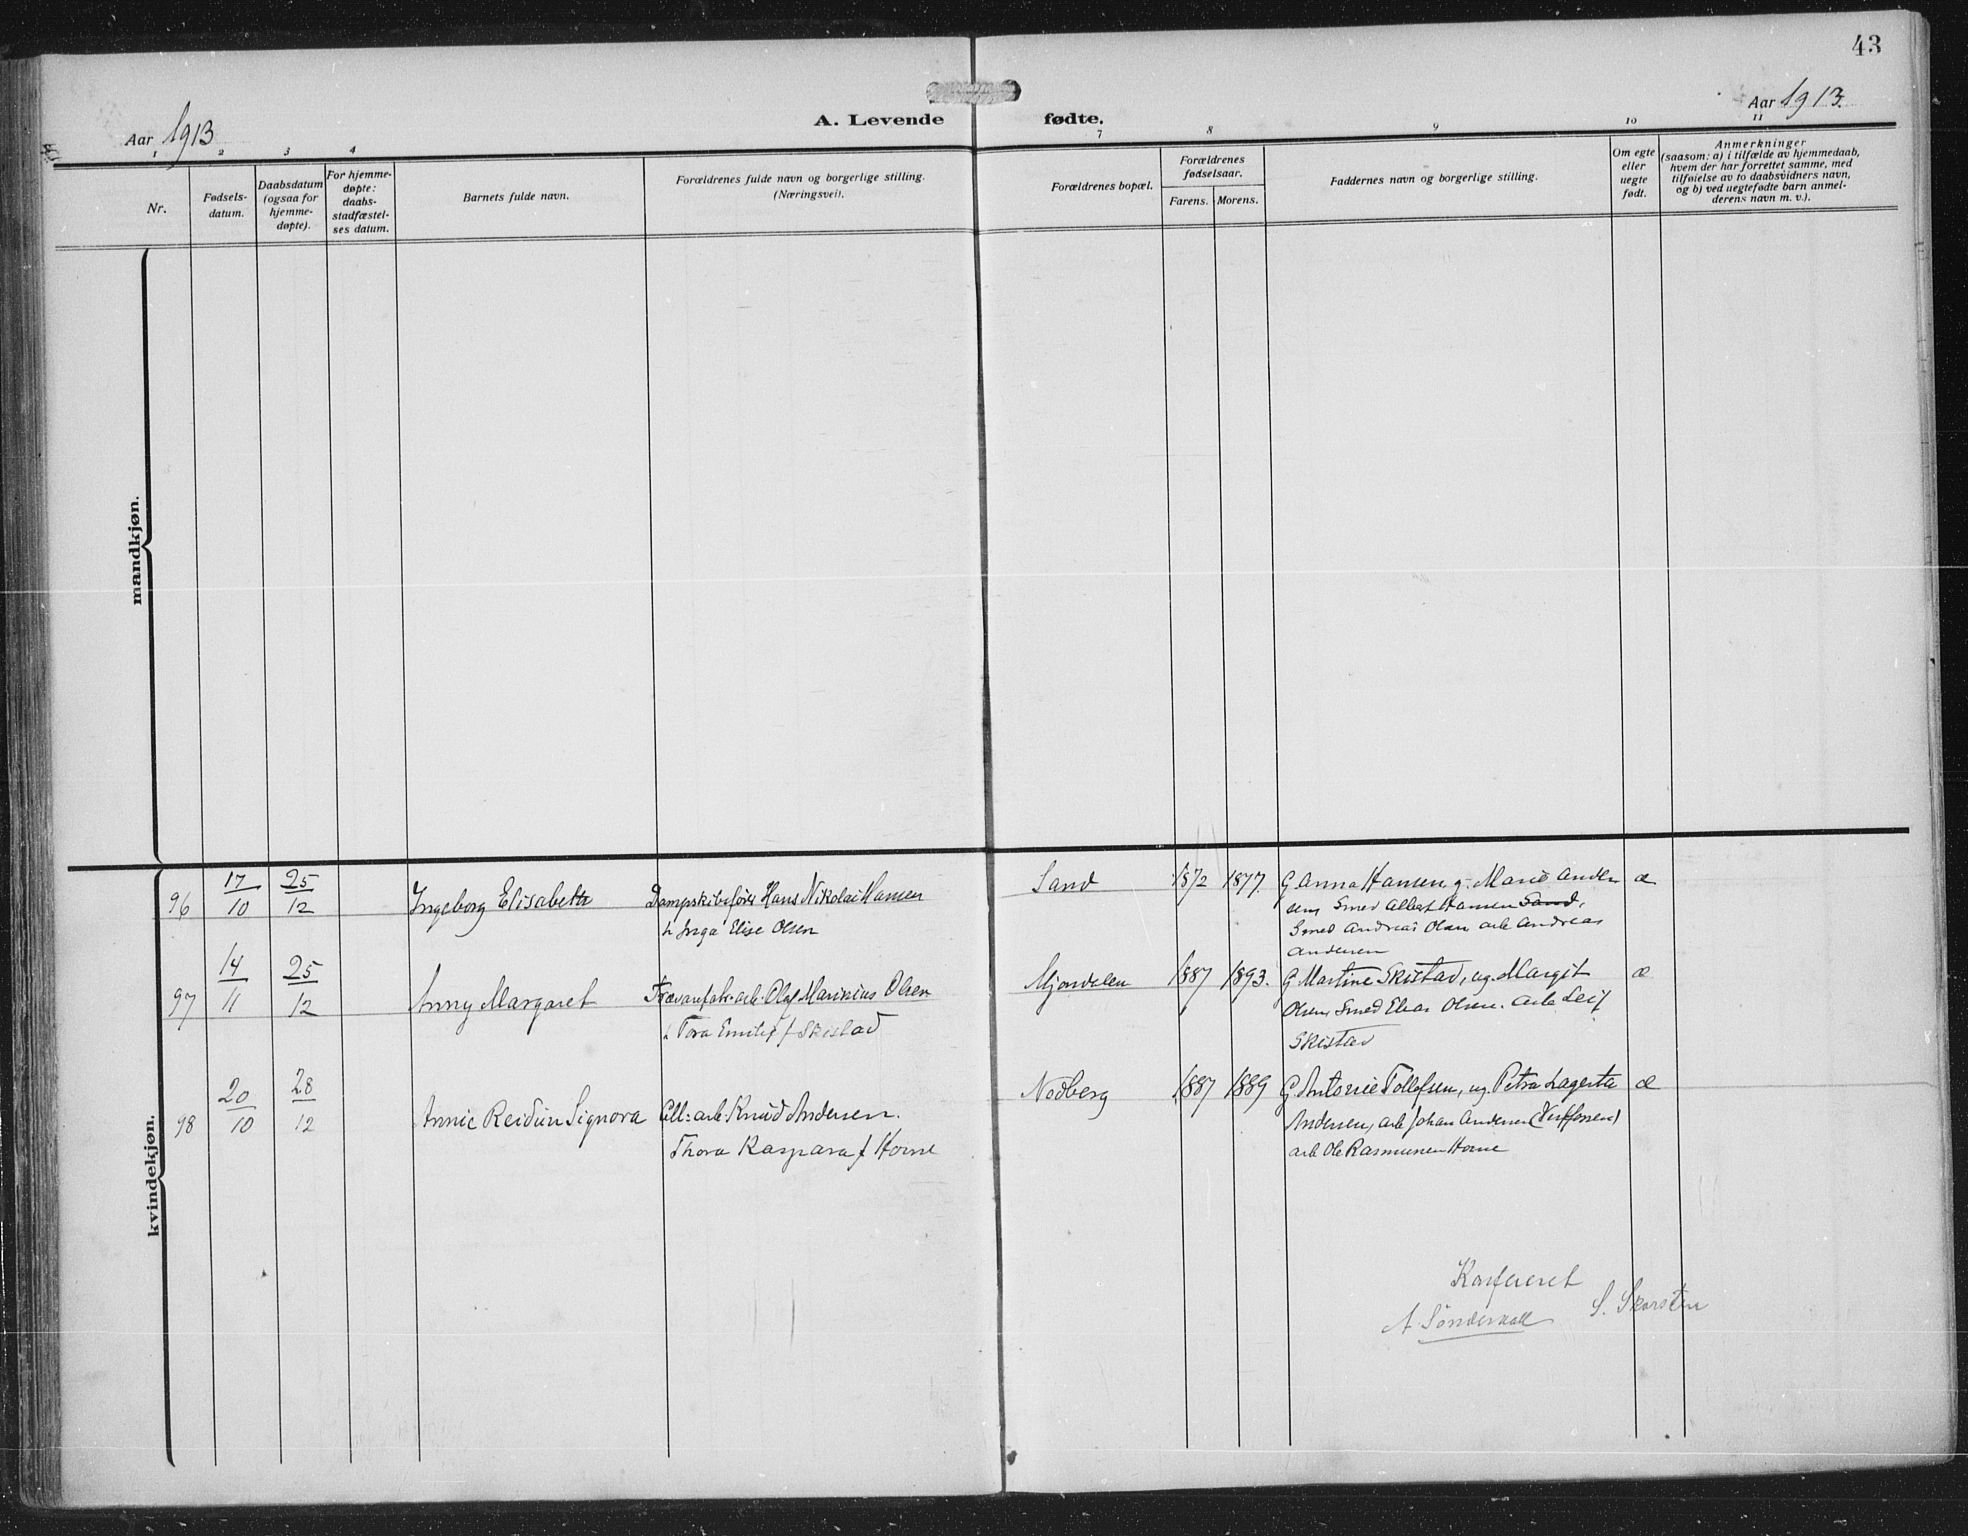 43
Aar 1913
A. Levende fødte.
Aar 1913.
1 2 3 4 7 8 9 10 11
Nr.
Fødsels-
datum.
Daabsdatum
(ogsaa for
hjemme-
døpte).
For hjemme-
døpte:
daabs-
stadfæstel-
ses datum.
Barnets fulde navn.
Forældrenes fulde navn og borgerlige stilling.
(Næringsvei).
Forældrenes bopæl.
Forældrenes
fødselsaar.
Farens. Morens.
Faddernes navn og borgerlige stilling.
Om egte
eller
uegte
født.
Anmerkninger
(saasom: a) i tilfælde av hjemmedaab,
hvem der har forrettet samme, med
tilføielse av to daabsvidners navn,
og b) ved uegtefødte barn anmel-
derens navn m. v.).
mandkjøn.
kvindekjøn.
96 17/10 25/12 Ingeborg Elisabeth Dampskibsfører Hans Nikolai Hansen
h Inga Elise Olsen
Sand 1872 1877. G Anna Hansen, g. Marie Ander
sen, Smed Albert Hansen Sand,
Smed Andreas Olsen, arb Andreas
Andersen
æ
97 14/11 25/12 Anny Margaret Trævarefabr. arb. Olaf Marinius Olsen
h Tora Emilie f Skistad
Mjøndalen 1887 1893. G Martine Skistad, ug. Margit
Olsen, Smed Elias Olsen. arb Leif
Skistad
æ
98 20/10 28/12 Annie Reidun Signora Cell: arb. Knud Andersen.
Thora Kaspara f Horne
Nedberg 1887 1889 G Antonie Tollefsen, ug. Petra Lagerta
Andersen, arb Johan Andersen (Vestfossen)
arb Ole Rasmussen Horne
æ
Konfereret
A. Sønderaal S. Skarsten